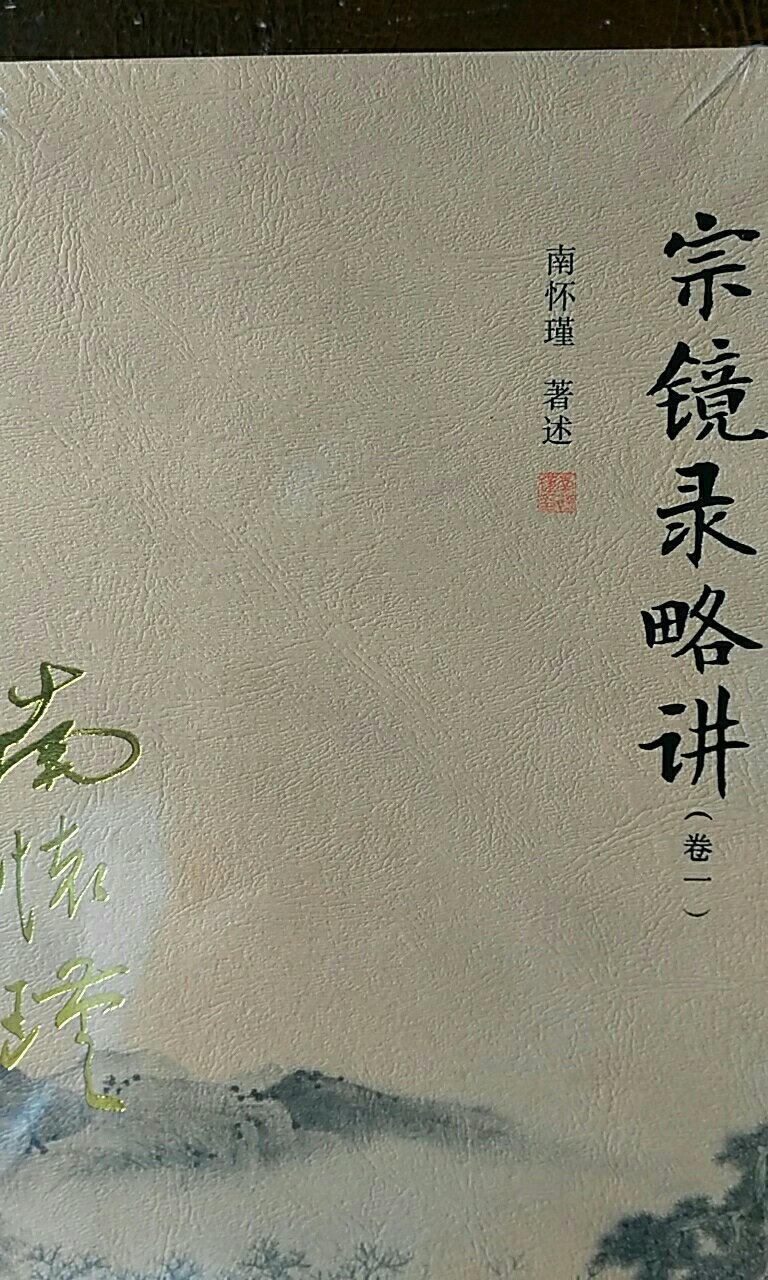 宗镜录略讲（卷一）
南怀瑾 著述
南懷瑾